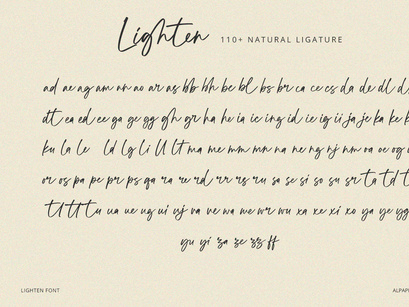 Lighten 110+ NATURAL LIGATURE
ad ae ag am an ao ar as bb bh be bl bs br ca ce cs da de dl d
dt ea ed ee ga ge gg gh gr ha he ia ic ing id ie ig ii ja je ka ke k
ku la le ld lg li ll lt ma me mm mn na ne ng nj nm oa oe og
or os pa pe pr ps qa ra re rd rr rs ru sa se si so su sr ta td t
tl tt tu ua ue ug ui uj va ve wa we wr wu xa xe xi xo ya ye yg
yu yi za ze zz ff
LIGHTEN FONT
ALPAP